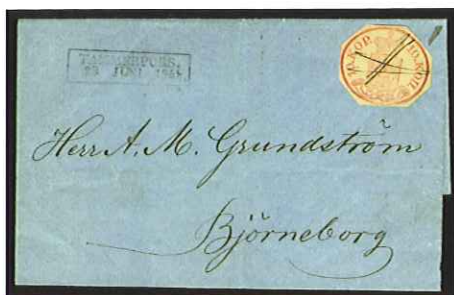 TAMMERFORS.
23 JUNI
10.KOP. 10.КОП.
Herr A. M. Grundström
Björneborg